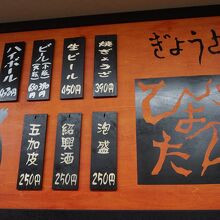 ぎょうざ
ひょうたん
焼ぎょうざ
390円
生ビール
450円
ビール
ハイボール
泡盛
250円
紹興酒
250円
五加皮
250円